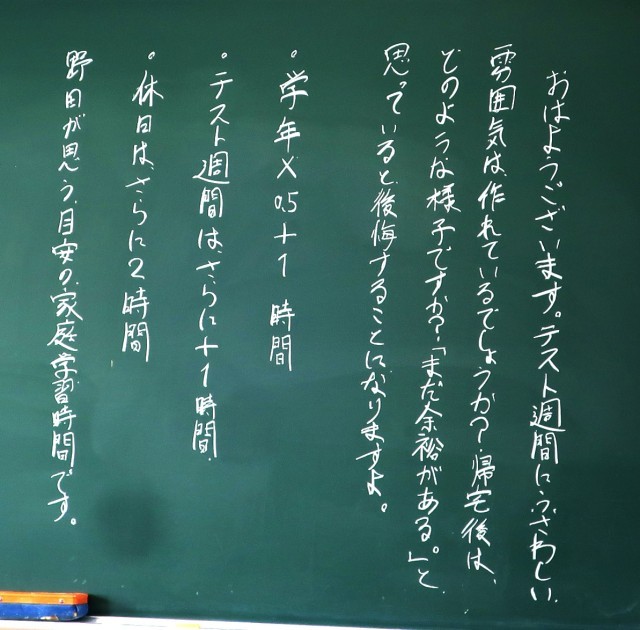 おはようございます。テスト週間にふさわしい
雰囲気は、作れているでしょうか?帰宅後は、
どのような様子ですか?「まだ余裕がある。」と
思っていると、後悔することになりますよ。
・学年×0.5+1 時間
・テスト週間は、さらに+1時間.
・休日は、さらに2時間
野田が思う、目安の、家庭学習時間です。